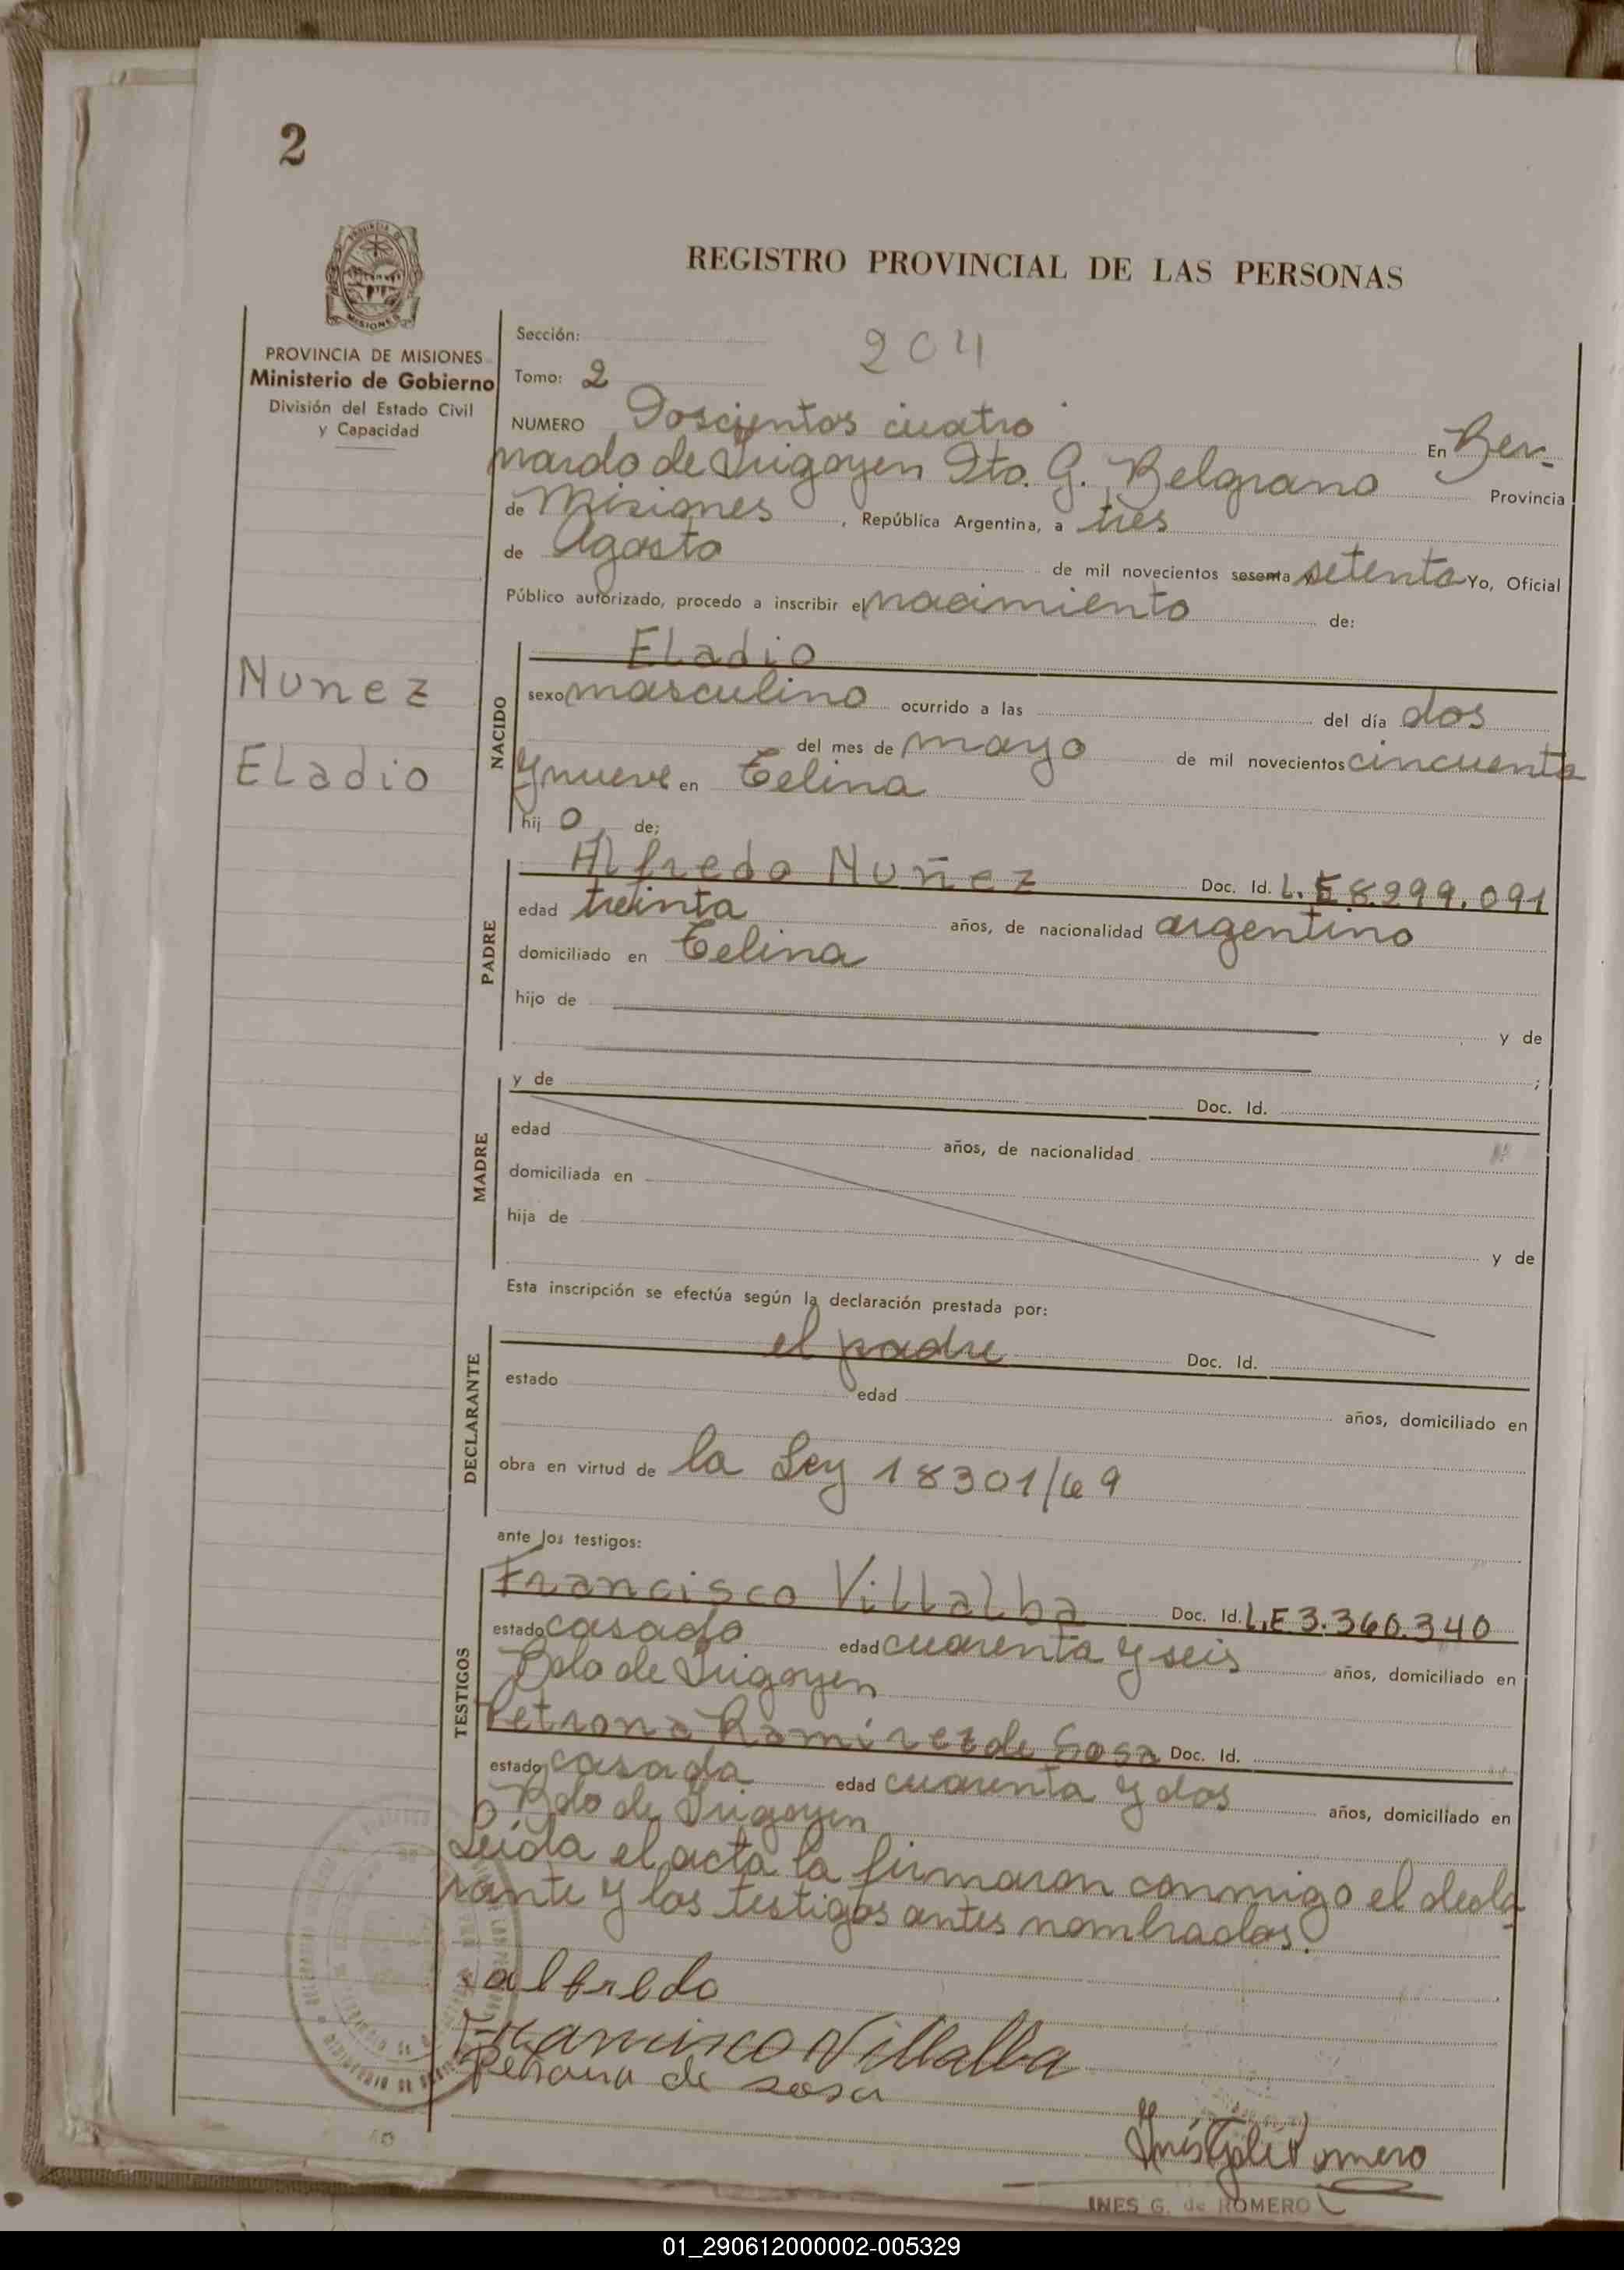 2
REGISTRO PROVINCIAL DE LAS PERSONAS
PROVINCIA DE MISIONES
Ministerio de Gobierno
División del Estado Civil
y Capacidad
Sección:
204
Tomo: 2
NUMERO Doscientos cuatro En Ber-
nardo de Irigoyen Dto. G. Belgrano Provincia
de Misiones, República Argentina, a tres
de Agosto de mil novecientos sesenta y setenta Yo, Oficial
Público autorizado, procedo a inscribir el nacimiento de:
Nunez
Eladio
NACIDO
Eladio
sexo masculino ocurrido a las del día dos
del mes de mayo de mil novecientos cincuenta
y nueve en Celina
hij o de;
PADRE
Alfredo Nuñez Doc. Id. L.E 8.299.091
edad treinta años, de nacionalidad argentino
domiciliado en Celina
hijo de
y de
;
MADRE
y de Doc. Id.
edad años, de nacionalidad
domiciliada en
hija de
y de
Esta inscripción se efectúa según la declaración prestada por:
DECLARANTE
el padre Doc. Id.
estado edad años, domiciliado en
obra en virtud de la Ley 18301/69
ante los testigos:
TESTIGOS
Francisco Villalba Doc. Id. L.E 3.360.340
estado casado edad cuarenta y seis años, domiciliado en
Bdo de Irigoyen
Petrona Ramírez de Sosa Doc. Id.
estado casada edad cuarenta y dos años, domiciliado en
Bdo de Irigoyen
Leída el acta la firmaron conmigo el decla
rante y los testigos antes nombrados.
alfredo
Francisco Villalba
Petrona de sosa
INES G. de ROMERO
01_290612000002-005329